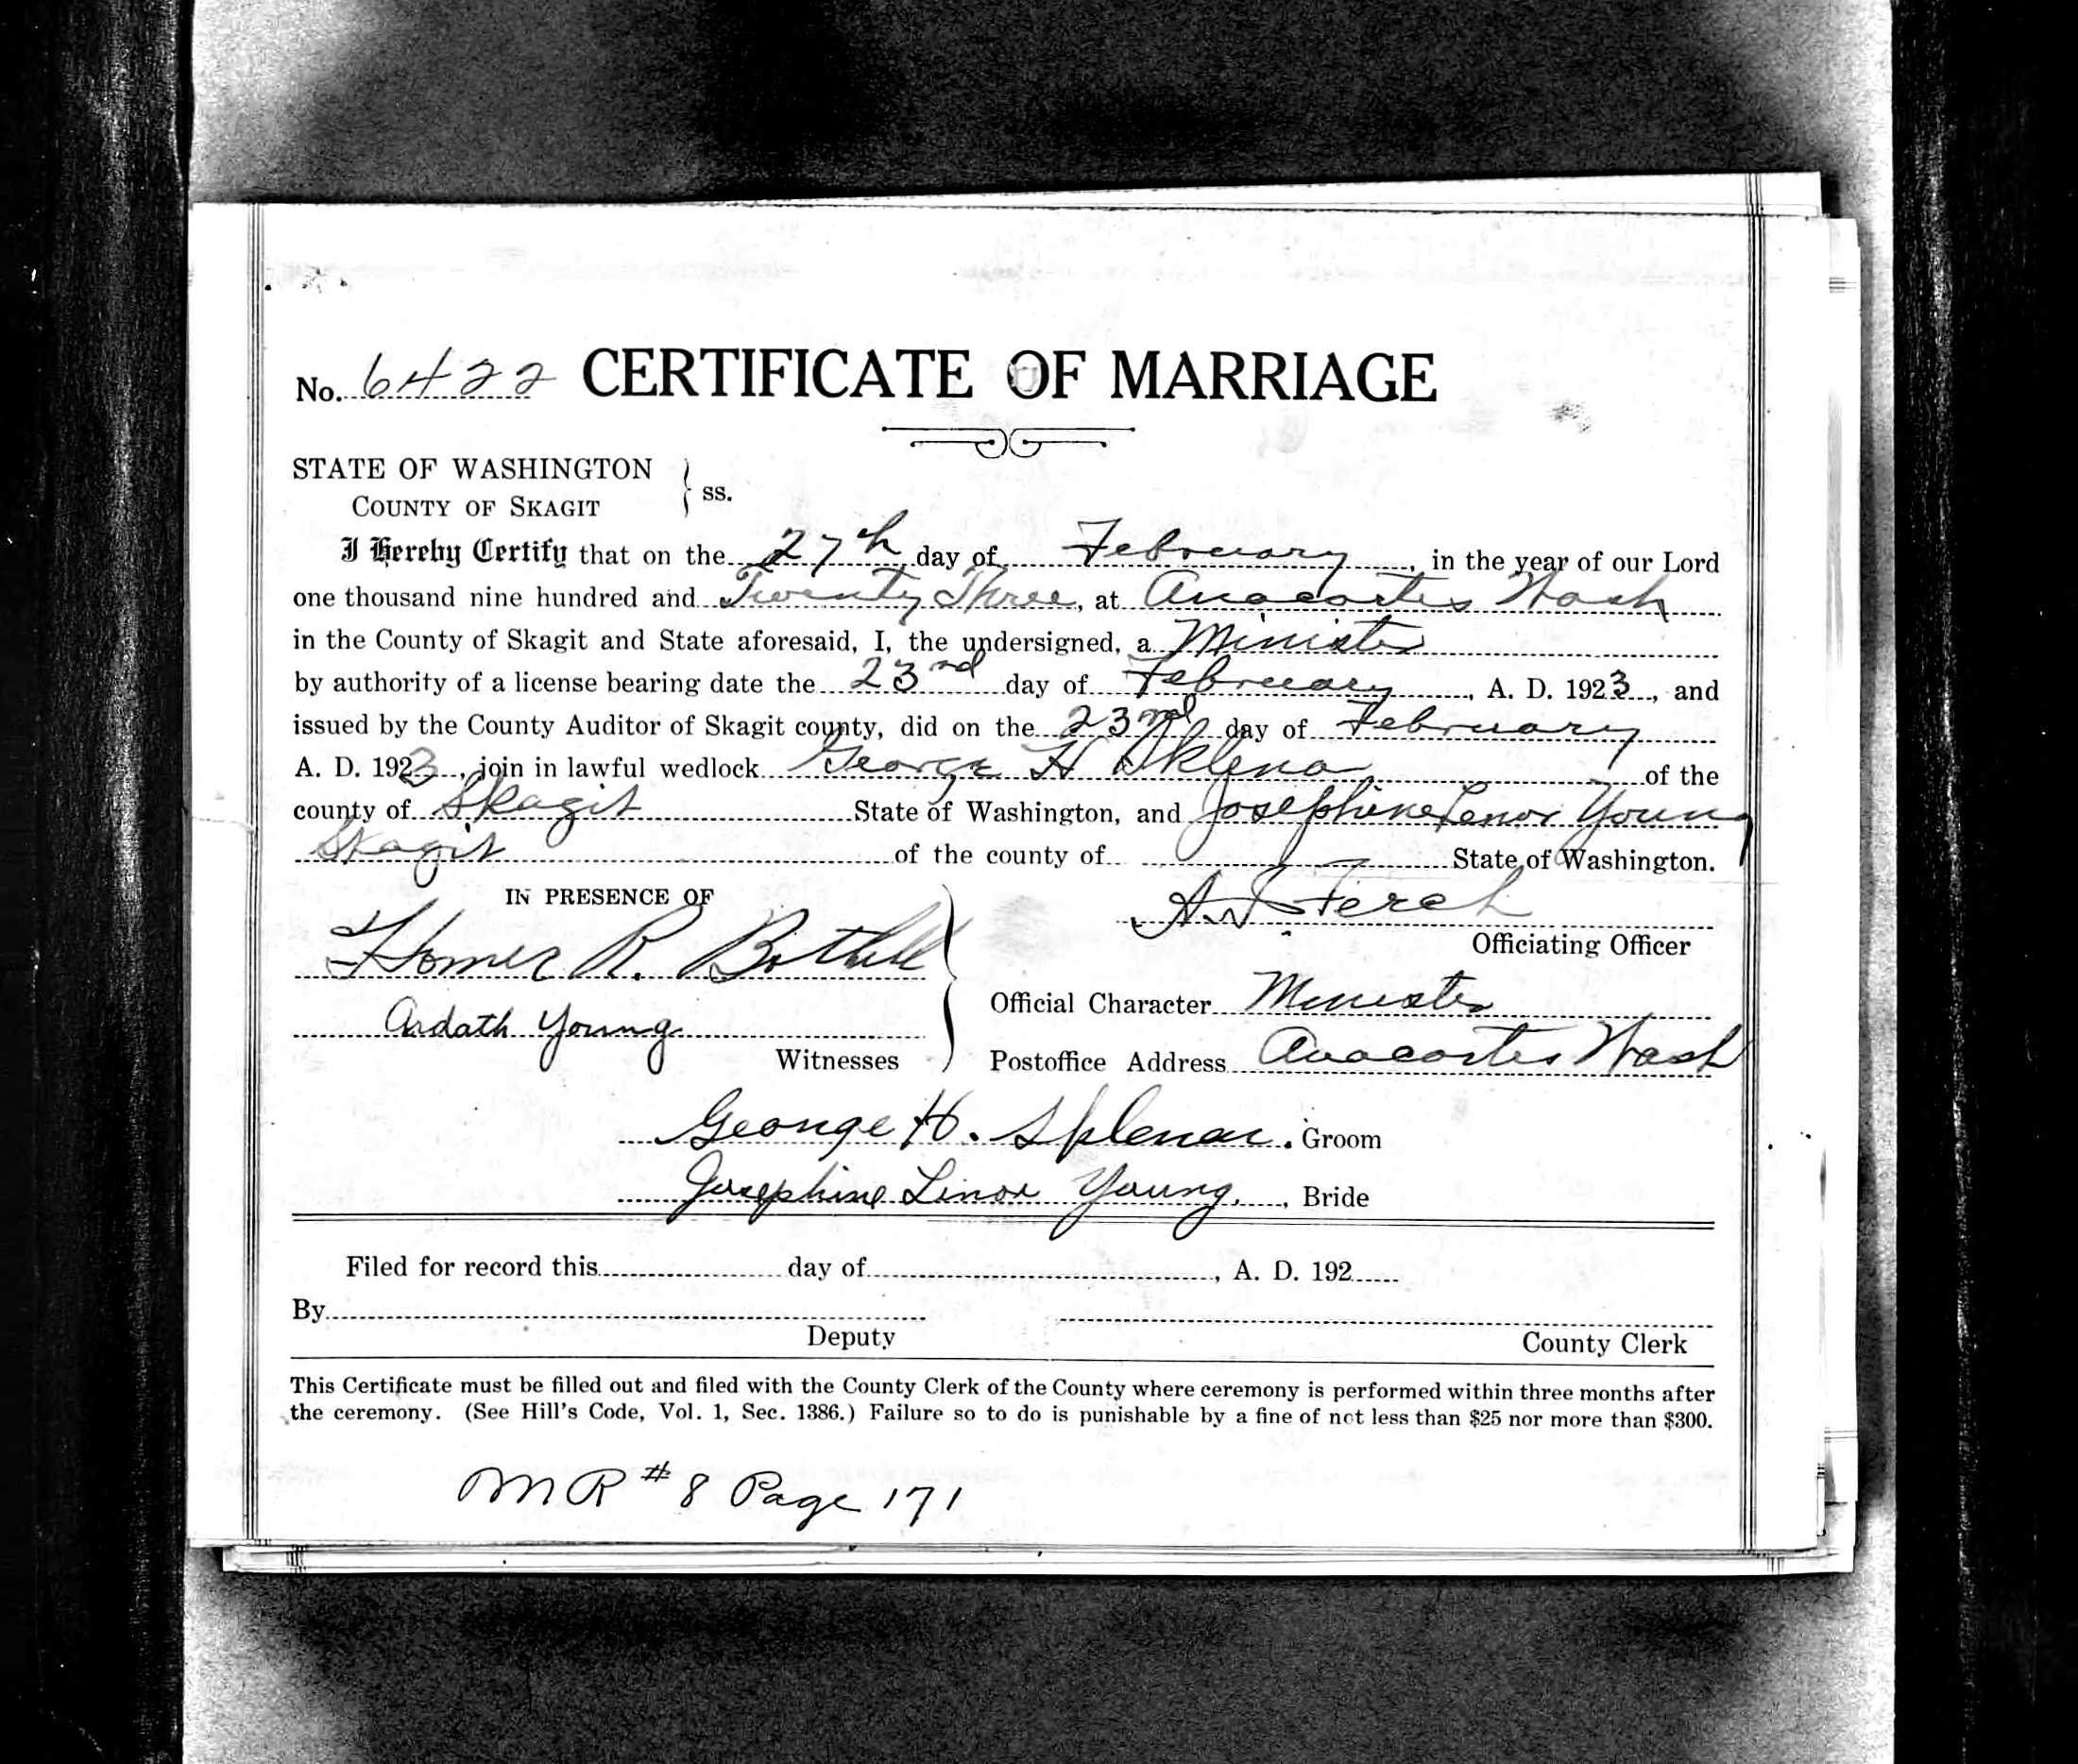 No. 6422 CERTIFICATE OF MARRIAGE
STATE OF WASHINGTON
COUNTY OF SKAGIT } ss.
I Hereby Certify that on the 27th day of February, in the year of our Lord
one thousand nine hundred and Twenty Three, at Anacortes Wash
in the County of Skagit and State aforesaid, I, the undersigned, a Minister
by authority of a license bearing date the 23rd day of February, A. D. 1923, and
issued by the County Auditor of Skagit county, did on the 23rd day of February
A. D. 1923, join in lawful wedlock George H Sklena of the
county of Skagit State of Washington, and Josephine Lenor Young
Skagit of the county of State of Washington.
IN PRESENCE OF
Homer R. Bothell
Ardath Young
Witnesses
Officiating Officer
Official Character Minister
Postoffice Address Anacortes Wash
George H. Sklenar. Groom
Josephine Linor Young, Bride
Filed for record this day of , A. D. 192
By
Deputy County Clerk
This Certificate must be filled out and filed with the County Clerk of the County where ceremony is performed within three months after
the ceremony. (See Hill's Code, Vol. 1, Sec. 1386.) Failure so to do is punishable by a fine of not less than $25 nor more than $300.
MR #8 Page 171